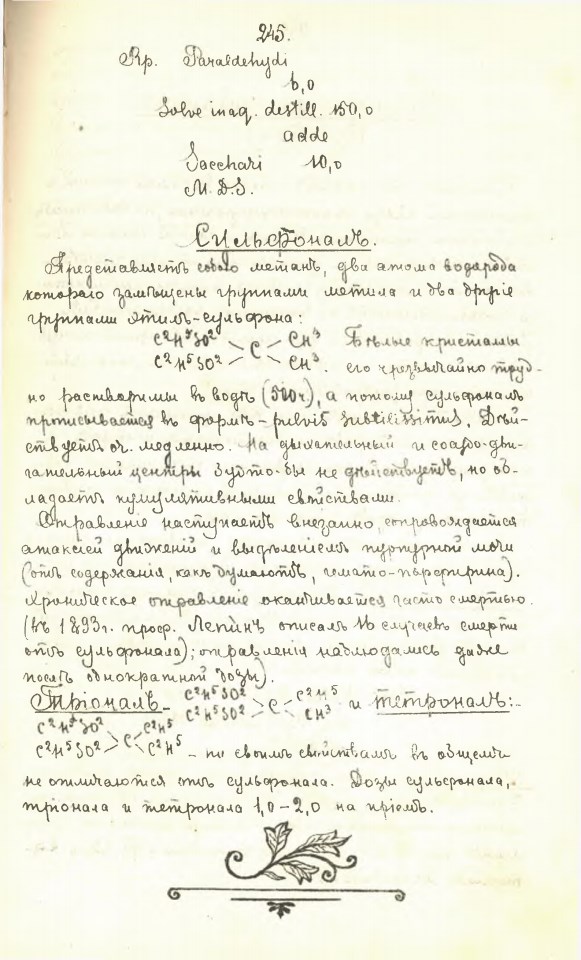 245.
Rp. Paraldehydi
6,0
Solve in aq. destill. 150,0
adde
Sacchari 10,0
M. D.S.
Сульфоналъ.
Представляетъ собою метанъ, два атома водорода
котораго замѣщены группами метила и два другіе
группами этилъ-сульфона:
C²H⁵SO² CH³ Бѣлые кристалы
C
C²H⁵SO² CH³. его чрезвычайно труд-
но растворимы въ водѣ (500ч), а потому сульфоналъ
прописывается въ формѣ - pulvis subtilissimus. Дѣй-
ствуетъ оч. медленно. На дыхательный и сосудо-дви-
гательный центры будто-бы не дѣйствуетъ, но об-
ладаетъ кумулятивными свойствами.
Отравленіе наступаетъ внезапно, сопровождается
атаксіей движеній и выдѣленіемъ пурпурной мочи
(отъ содержанія, какъ думаютъ, гемато-порфирина).
Хроническое отравленіе оканчивается часто смертью.
(въ 1893г. проф. Лепинъ описалъ 16 случаевъ смерти
отъ сульфонала); отравленія наблюдались даже
послѣ однократной дозы).
Тріоналъ - C²H⁵SO² C²H⁵ и тетроналъ:-
C
C²H⁵SO² CH³
C²H⁵SO² C²H⁵
C
C²H⁵SO² C²H⁵ - по своимъ свойствамъ въ общемъ
не отличаются отъ сульфонала. Дозы сульфонала,
тріонала и тетронала 1,0-2,0 на пріемъ.